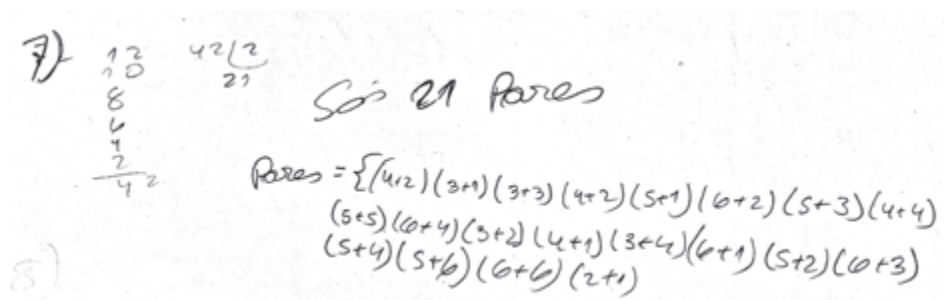 7) 12 42 | 2
10 21
8
6
4
2
42
Sós 21 Pares
Pares = {(4+2) (3+1) (3+3) (4+2) (5+1) (6+2) (5+3) (4+4)
(5+5) (6+4) (3+2) (4+1) (3+4) (6+1) (5+2) (6+3)
(5+4) (5+6) (6+6) (2+1)
8)